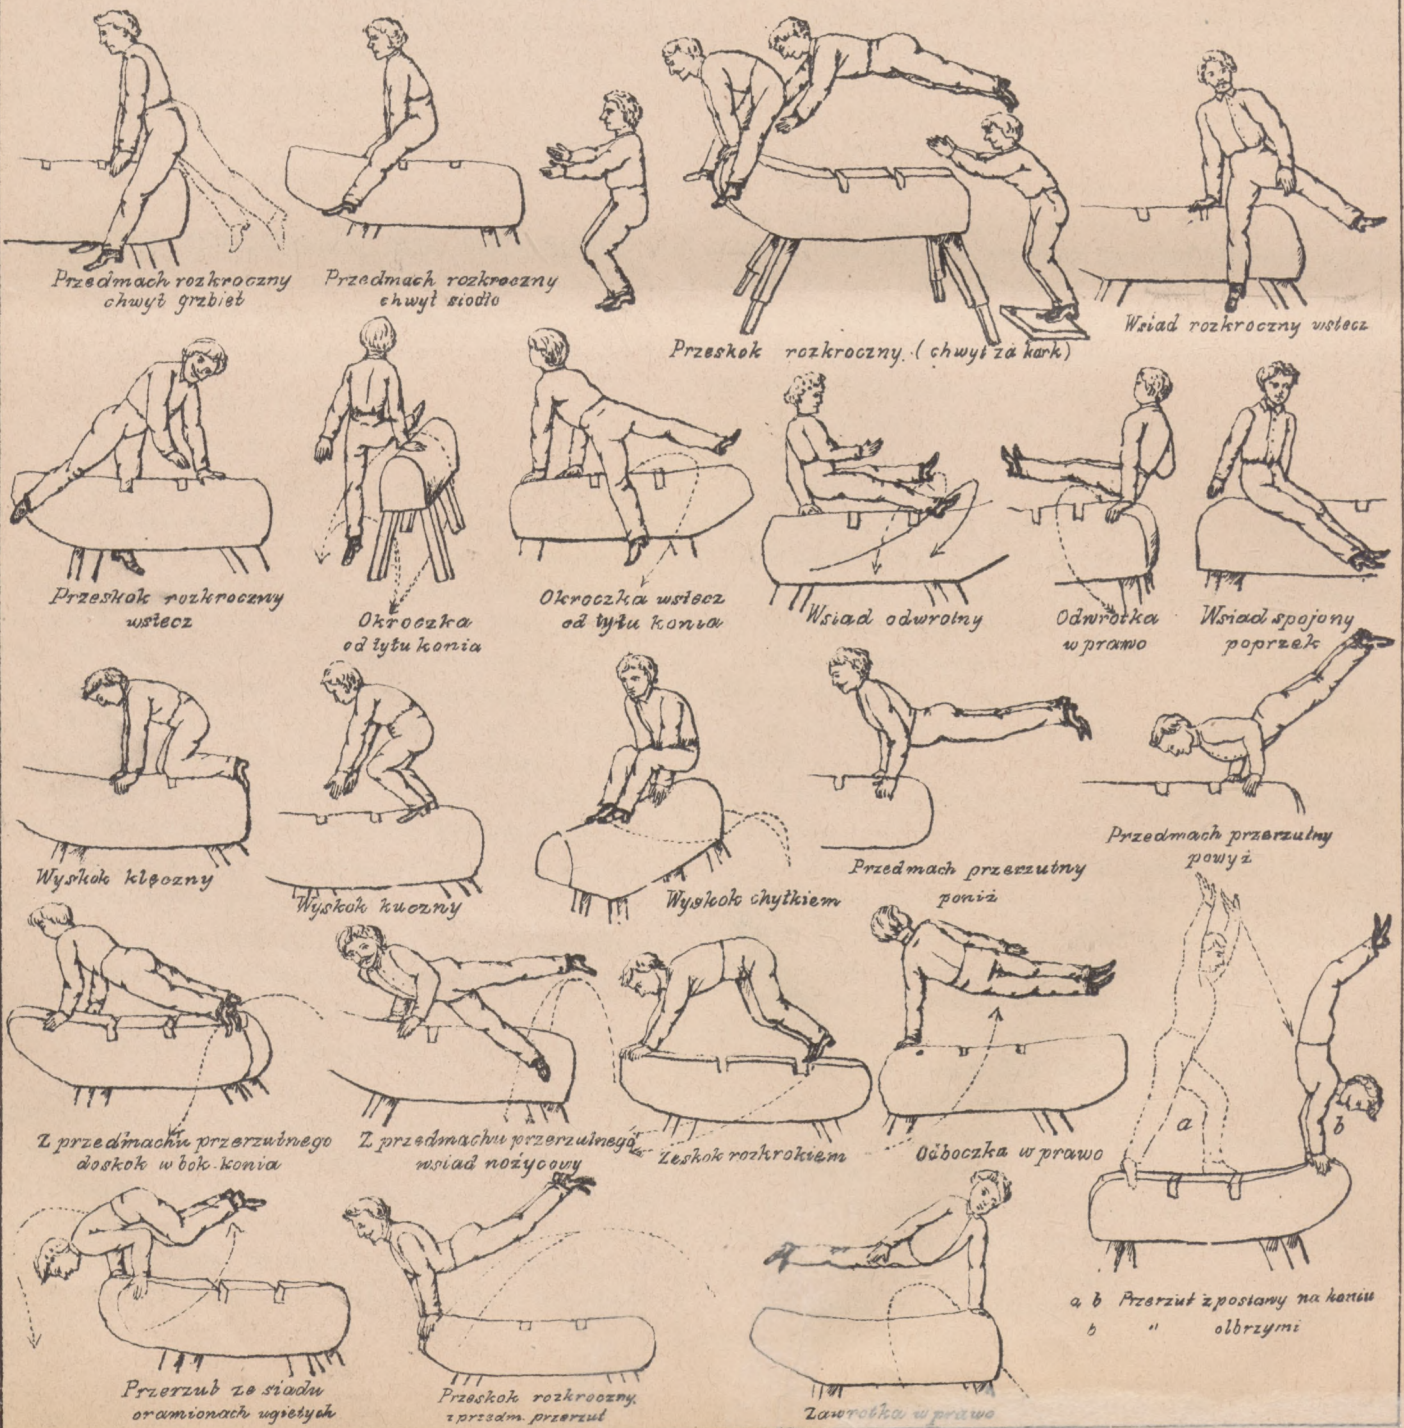 Przedmach rozkroczny
chwyt grzbiet
Przedmach rozkroczny
chwyt siodło
Przeskok rozkroczny. (chwyt za kark)
Wsiad rozkroczny wstecz
Przeskok rozkroczny
wstecz
Okroczka
od tyłu konia
Okroczka wstecz
od tyłu konia
Wsiad odwrotny
Odwrotka
w prawo
Wsiad spojony
poprzek
Wyskok klęczny
Wyskok kuczny
Wyskok chyłkiem
Przedmach przerzutny
poniż
Przedmach przerzutny
powyż
Z przedmachu przerzutnego
doskok w bok konia
Z przedmachu przerzutnego
wsiad nożycowy
Zeskok rozkrokiem
Odboczka w prawo
a
b
a b Przerzut z postawy na koniu
b " olbrzymi
Przerzut ze siadu
o ramionach ugiętych
Przeskok rozkroczny.
z przedm. przerzut
Zawrotka w prawo